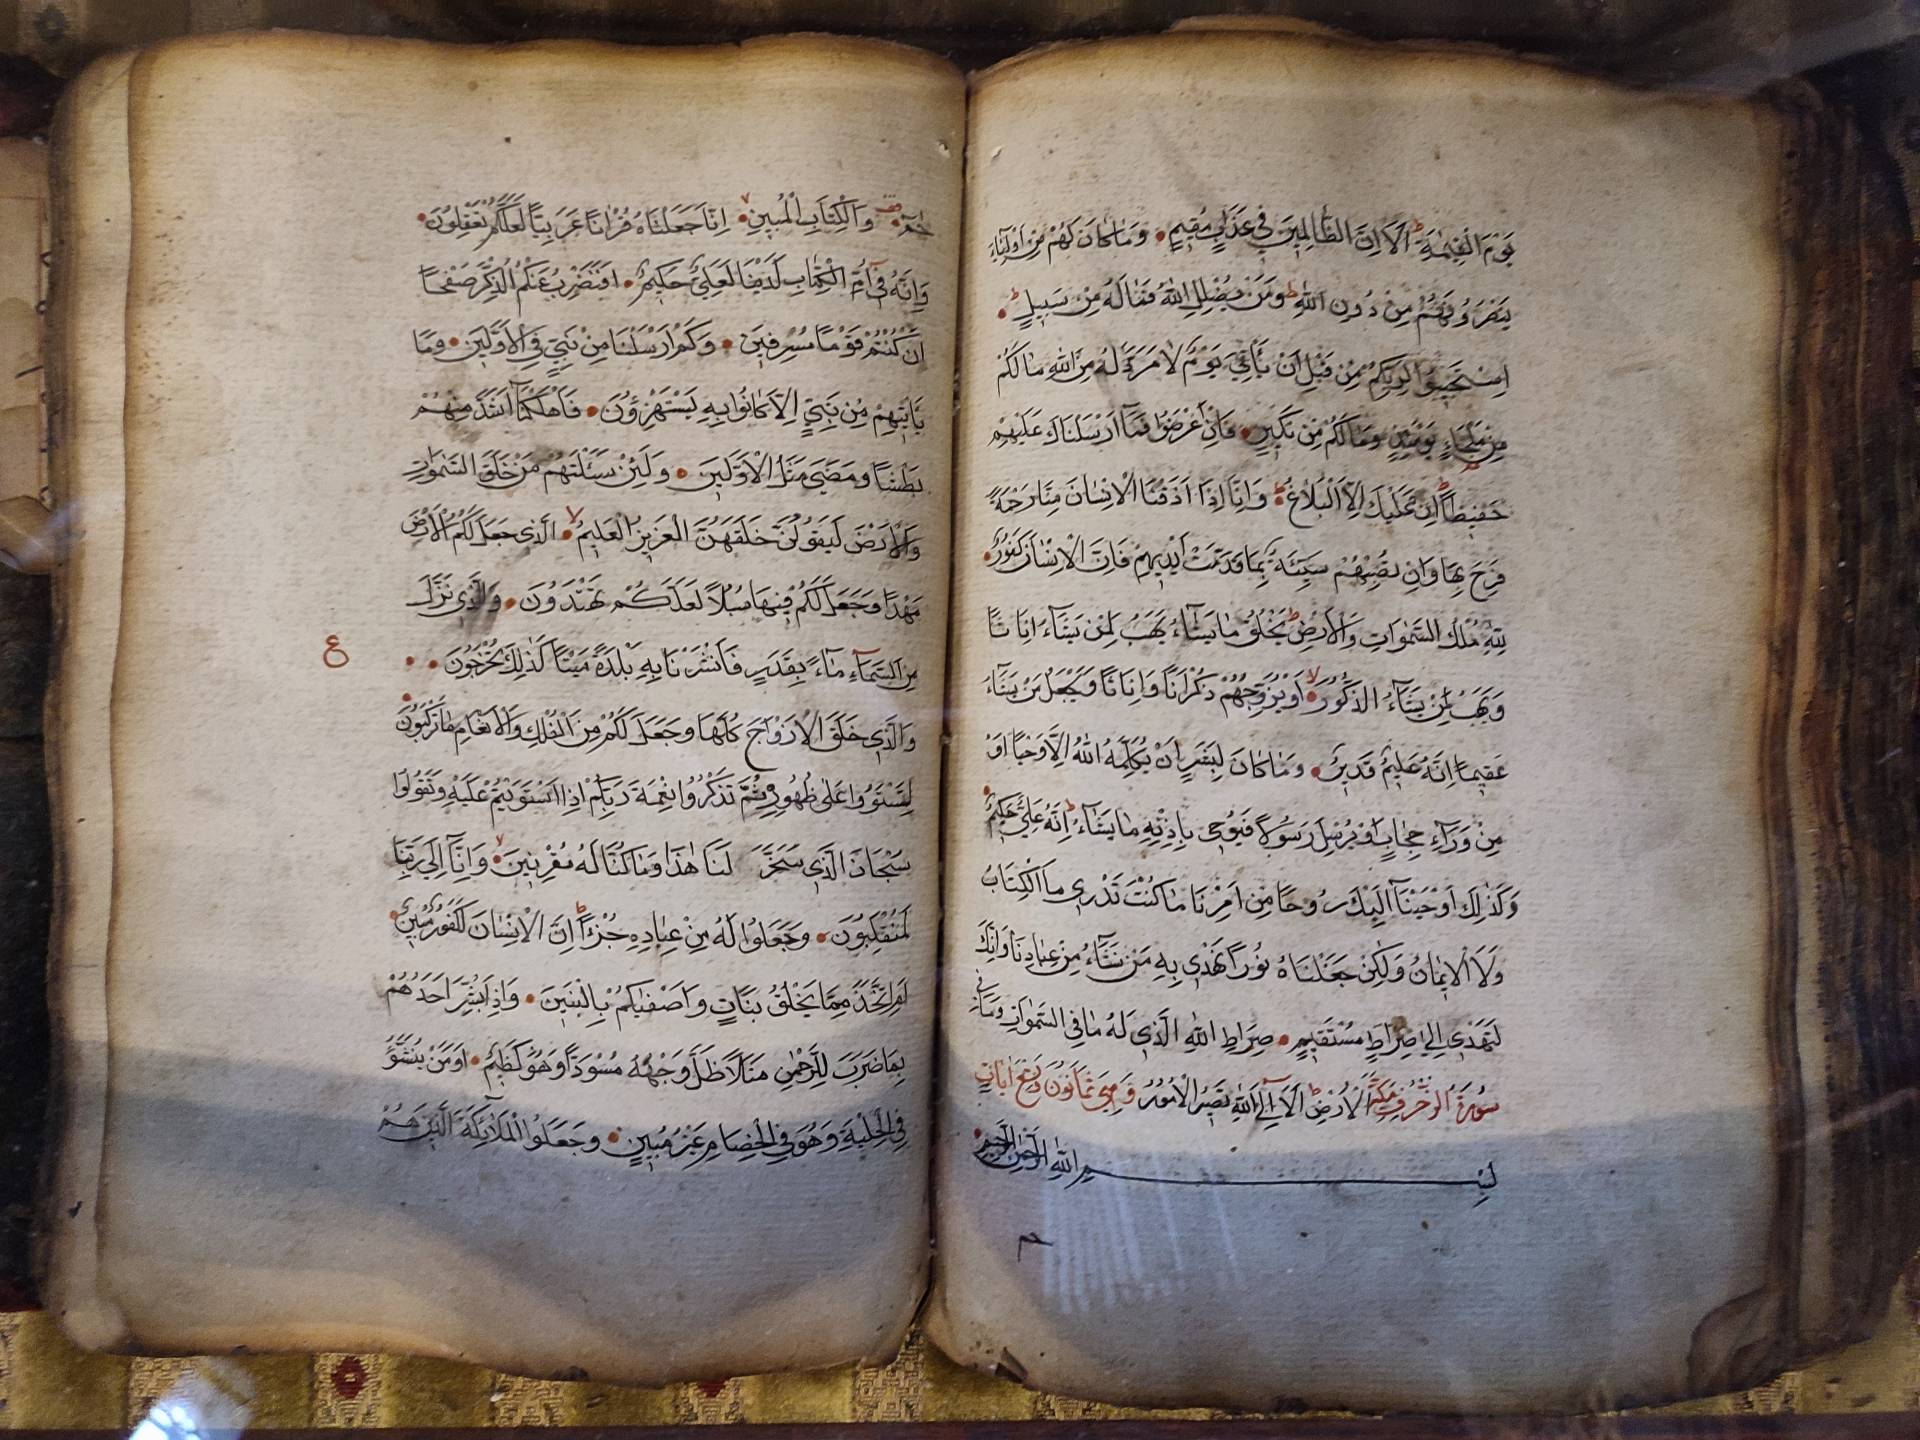 يَوْمَ الْقِيٰمَةِ ط اَلَا اِنَّ الظَّالِمِيْنَ فِيْ عَذَابٍ مُقِيْمٍ وَمَا كَانَ لَهُمْ مِنْ اَوْلِيَاءَ
يَنْصُرُوْنَهُمْ مِنْ دُوْنِ اللّٰهِ ط وَمَنْ يُضْلِلِ اللّٰهُ فَمَا لَهُ مِنْ سَبِيْلٍ ط
اِسْتَجِيْبُوْا لِرَبِّكُمْ مِنْ قَبْلِ اَنْ يَأْتِيَ يَوْمٌ لَا مَرَدَّ لَهُ مِنَ اللّٰهِ مَا لَكُمْ
مِنْ مَلْجَاءٍ يَوْمَئِذٍ وَمَا لَكُمْ مِنْ نَكِيْرٍ فَاِنْ اَعْرَضُوْا فَمَا اَرْسَلْنَاكَ عَلَيْهِمْ
حَفِيْظًا ط اِنْ عَلَيْكَ اِلَّا الْبَلَاغُ ط وَاِنَّا اِذَا اَذَقْنَا الْاِنْسَانَ مِنَّا رَحْمَةً
فَرِحَ بِهَا وَاِنْ تُصِبْهُمْ سَيِّئَةٌ بِمَا قَدَّمَتْ اَيْدِيْهِمْ فَاِنَّ الْاِنْسَانَ كَفُوْرٌ
لِلّٰهِ مُلْكُ السَّمٰوَاتِ وَالْاَرْضِ ط يَخْلُقُ مَا يَشَاءُ يَهَبُ لِمَنْ يَشَاءُ اِنَاثًا
وَيَهَبُ لِمَنْ يَشَاءُ الذُّكُوْرَ لا اَوْ يُزَوِّجُهُمْ ذُكْرَانًا وَاِنَاثًا وَيَجْعَلُ مَنْ يَشَاءُ
عَقِيْمًا اِنَّهُ عَلِيْمٌ قَدِيْرٌ وَمَا كَانَ لِبَشَرٍ اَنْ يُكَلِّمَهُ اللّٰهُ اِلَّا وَحْيًا اَوْ
مِنْ وَرَاءِ حِجَابٍ اَوْ يُرْسِلَ رَسُوْلًا فَيُوْحِيَ بِاِذْنِهِ مَا يَشَاءُ ط اِنَّهُ عَلِيٌّ حَكِيْمٌ
وَكَذٰلِكَ اَوْحَيْنَا اِلَيْكَ رُوْحًا مِنْ اَمْرِنَا مَا كُنْتَ تَدْرِيْ مَا الْكِتَابُ
وَلَا الْاِيْمَانُ وَلٰكِنْ جَعَلْنَاهُ نُوْرًا نَهْدِيْ بِهِ مَنْ نَشَاءُ مِنْ عِبَادِنَا وَاِنَّكَ
لَتَهْدِيْ اِلٰى صِرَاطٍ مُسْتَقِيْمٍ صِرَاطِ اللّٰهِ الَّذِيْ لَهُ مَا فِي السَّمٰوَاتِ وَمَا فِي
سُوْرَةُ الزُّخْرُفِ مَكِّيَّةٌ الْاَرْضِ ط اَلَا اِلَى اللّٰهِ تَصِيْرُ الْاُمُوْرُ وَهِيَ ثَمَانُوْنَ وَتِسْعُ اٰيَاتٍ
بِسْمِ اللّٰهِ الرَّحْمٰنِ الرَّحِيْمِ
حم
حٰمٓ وَالْكِتَابِ الْمُبِيْنِ لا اِنَّا جَعَلْنَاهُ قُرْاٰنًا عَرَبِيًّا لَعَلَّكُمْ تَعْقِلُوْنَ
وَاِنَّهُ فِيْ اُمِّ الْكِتَابِ لَدَيْنَا لَعَلِيٌّ حَكِيْمٌ اَفَنَضْرِبُ عَنْكُمُ الذِّكْرَ صَفْحًا
اَنْ كُنْتُمْ قَوْمًا مُسْرِفِيْنَ وَكَمْ اَرْسَلْنَا مِنْ نَبِيٍّ فِي الْاَوَّلِيْنَ وَمَا
يَأْتِيْهِمْ مِنْ نَبِيٍّ اِلَّا كَانُوْا بِهِ يَسْتَهْزِؤُنَ فَاَهْلَكْنَا اَشَدَّ مِنْهُمْ
بَطْشًا وَمَضٰى مَثَلُ الْاَوَّلِيْنَ وَلَئِنْ سَئَلْتَهُمْ مَنْ خَلَقَ السَّمٰوَاتِ
وَالْاَرْضَ لَيَقُوْلُنَّ خَلَقَهُنَّ الْعَزِيْزُ الْعَلِيْمُ لا الَّذِيْ جَعَلَ لَكُمُ الْاَرْضَ
مَهْدًا وَجَعَلَ لَكُمْ فِيْهَا سُبُلًا لَعَلَّكُمْ تَهْتَدُوْنَ وَالَّذِيْ نَزَّلَ
مِنَ السَّمَاءِ مَاءً بِقَدَرٍ فَاَنْشَرْنَا بِهِ بَلْدَةً مَيْتًا كَذٰلِكَ تُخْرَجُوْنَ ع
وَالَّذِيْ خَلَقَ الْاَزْوَاجَ كُلَّهَا وَجَعَلَ لَكُمْ مِنَ الْفُلْكِ وَالْاَنْعَامِ مَا تَرْكَبُوْنَ
لِتَسْتَوُوْا عَلٰى ظُهُوْرِهِ ثُمَّ تَذْكُرُوْا نِعْمَةَ رَبِّكُمْ اِذَا اسْتَوَيْتُمْ عَلَيْهِ وَتَقُوْلُوْا
سُبْحَانَ الَّذِيْ سَخَّرَ لَنَا هٰذَا وَمَا كُنَّا لَهُ مُقْرِنِيْنَ لا وَاِنَّا اِلٰى رَبِّنَا
لَمُنْقَلِبُوْنَ وَجَعَلُوْا لَهُ مِنْ عِبَادِهِ جُزْءًا ط اِنَّ الْاِنْسَانَ لَكَفُوْرٌ مُبِيْنٌ
اَمِ اتَّخَذَ مِمَّا يَخْلُقُ بَنَاتٍ وَاَصْفٰيكُمْ بِالْبَنِيْنَ وَاِذَا بُشِّرَ اَحَدُهُمْ
بِمَا ضَرَبَ لِلرَّحْمٰنِ مَثَلًا ظَلَّ وَجْهُهُ مُسْوَدًّا وَهُوَ كَظِيْمٌ اَوَمَنْ يُنَشَّؤُ
فِي الْحِلْيَةِ وَهُوَ فِي الْخِصَامِ غَيْرُ مُبِيْنٍ وَجَعَلُوا الْمَلَائِكَةَ الَّذِيْنَ هُمْ